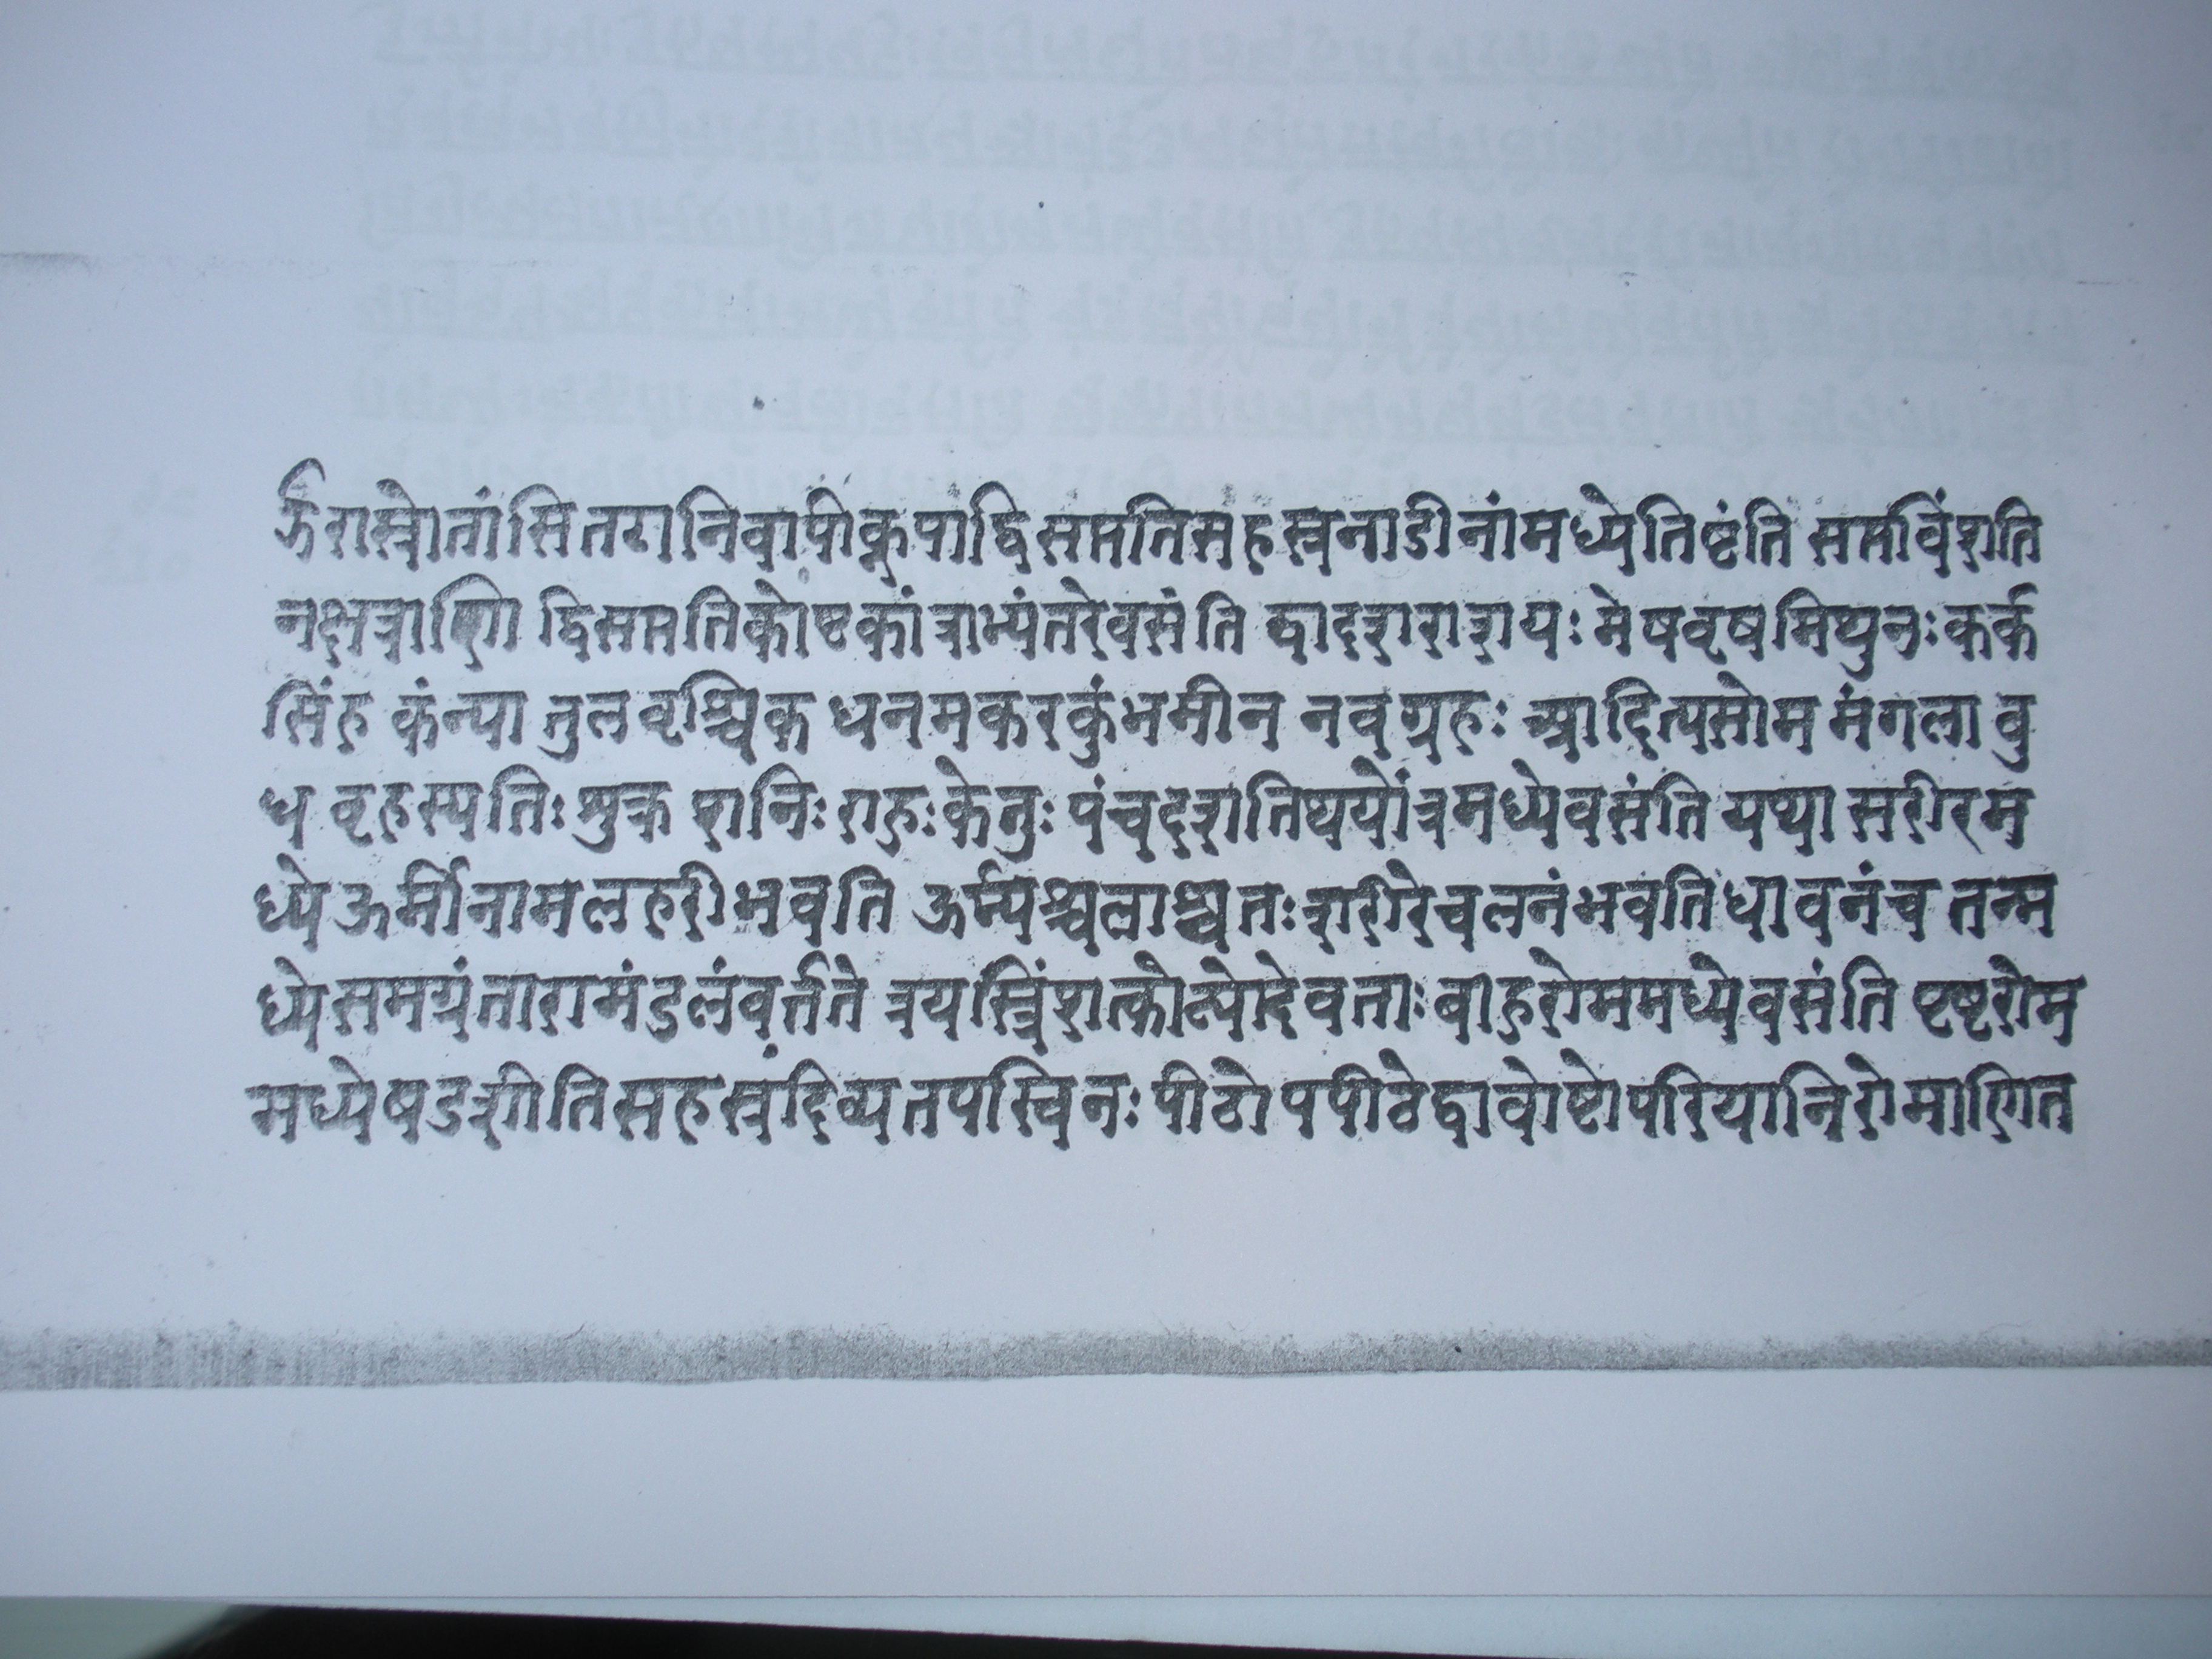 र्झरास्रोतांसि तटानिवापीकूपाद्विसप्ततिसहस्रनाडीनांमध्येतिष्टंति सप्तविंशति
नक्षत्राणि द्विसप्ततिकोष्टकांत्राभ्यंतरेवसंति द्वादशराशयः मेषवृषमिथुनःकर्क
सिंह कंन्या तुलवृश्चिक धनमकरकुंभमीन नवग्रहः आदित्यसोम मंगला बु
ध बृहस्पतिः शुक्र शनिः राहुःकेतुः पंचदशतिथयोंत्रमध्येवसंति यथा सरीरम
ध्ये ऊर्मीनामलहरीभवति ऊर्म्यश्चलाश्चतःशरीरेचलनंभवतिधावनंच तन्म
ध्येसमग्रंतारामंडलंवर्त्तते त्रयस्त्रिंशत्कोट्योदेवताःबाहरोममध्येवसंति पृष्टरोम
मध्येषडशीतिसहस्रंदिव्यतपस्विनः पीठोपपीठेद्वावोष्टोपरियानिरोमाणित